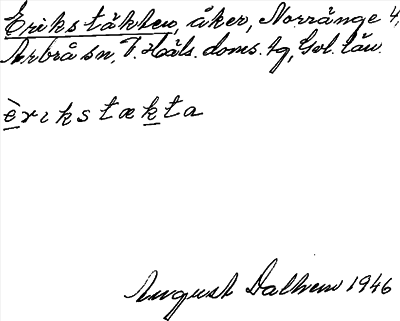 Erikstäkten, åker, Norränge 4,
Arbrå sn, V. Häls. doms. tg, Gvl. län.
èrɩkstækta
August Dalhem 1946